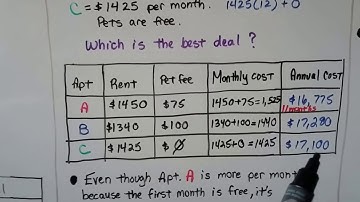 C = $1425 per month. 1425(12) + 0
Pets are free.
Which is the best deal?
Apt Rent Pet fee Monthly Cost Annual Cost
A $1450 $75 1450+75=1,525 $16,775
11 months
B $1340 $100 1340+100=1440 $17,280
C $1425 $0 1425+0=1425 $17,100
• Even though Apt. A is more per mont
because the first month is free, it's